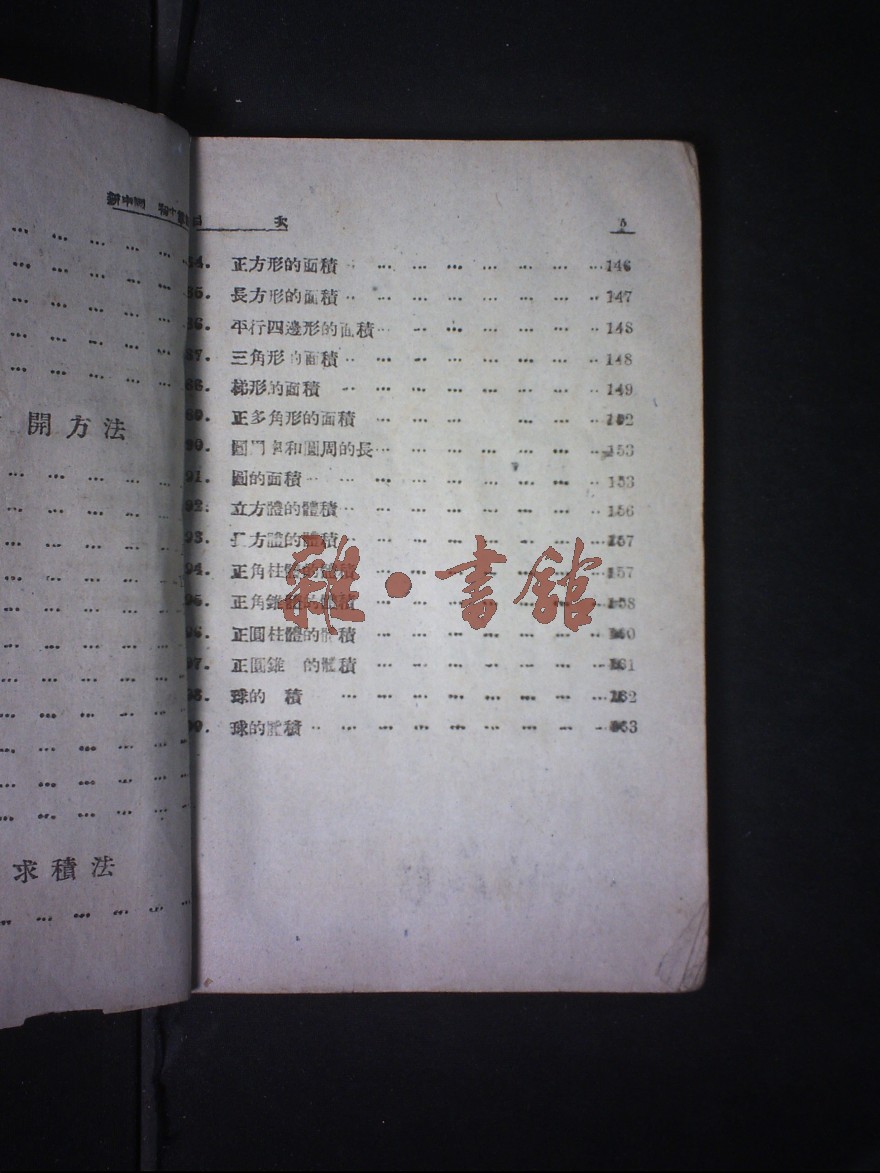 開方法
求積法
次
84. 正方形的面積 146
85. 長方形的面積 147
86. 平行四邊形的面積 148
87. 三角形的面積 148
88. 梯形的面積 149
89. 正多角形的面積
90. 和圓周的長 153
91. 圓的面積 153
92. 立方體的體積 156
93. 方體的體積 157
94. 正角柱體的體積 157
95. 正角錐體的體積 158
96. 正圓柱體的體積 160
97. 正圓錐 的體積 161
98. 球的 積 162
99. 球的體積 163
雜·書館